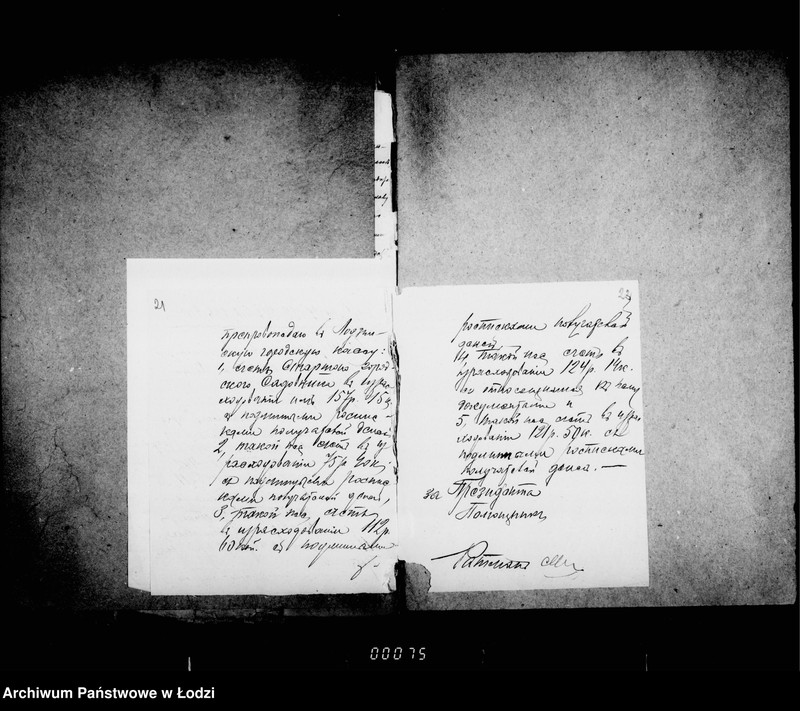 21
препровождаю въ Лодзин-
скую городскую кассу:
1, счетъ Старшаго город-
ского Садовника въ израс-
ходованіи имъ 157р. 15к
съ подшитыми роспис-
ками получателей денегъ
2, такой же счетъ въ из
расходованіи 75р. 40к;
съ подшитыми роспис
ками получателей денегъ,
3, такой же счетъ
въ израсходованіи 112р.
60коп. съ подшитыми
22
росписками получателей
денегъ
4, такой же счетъ въ
израсходованіи 124р. 14к.
съ относящимися къ нему
документами и
5, такой же счетъ въ израс
ходованіи 121р. 50к. съ
подшитыми росписками
получателей денегъ. —
За Президента
Помощникъ
00075
Archiwum Państwowe w Łodzi